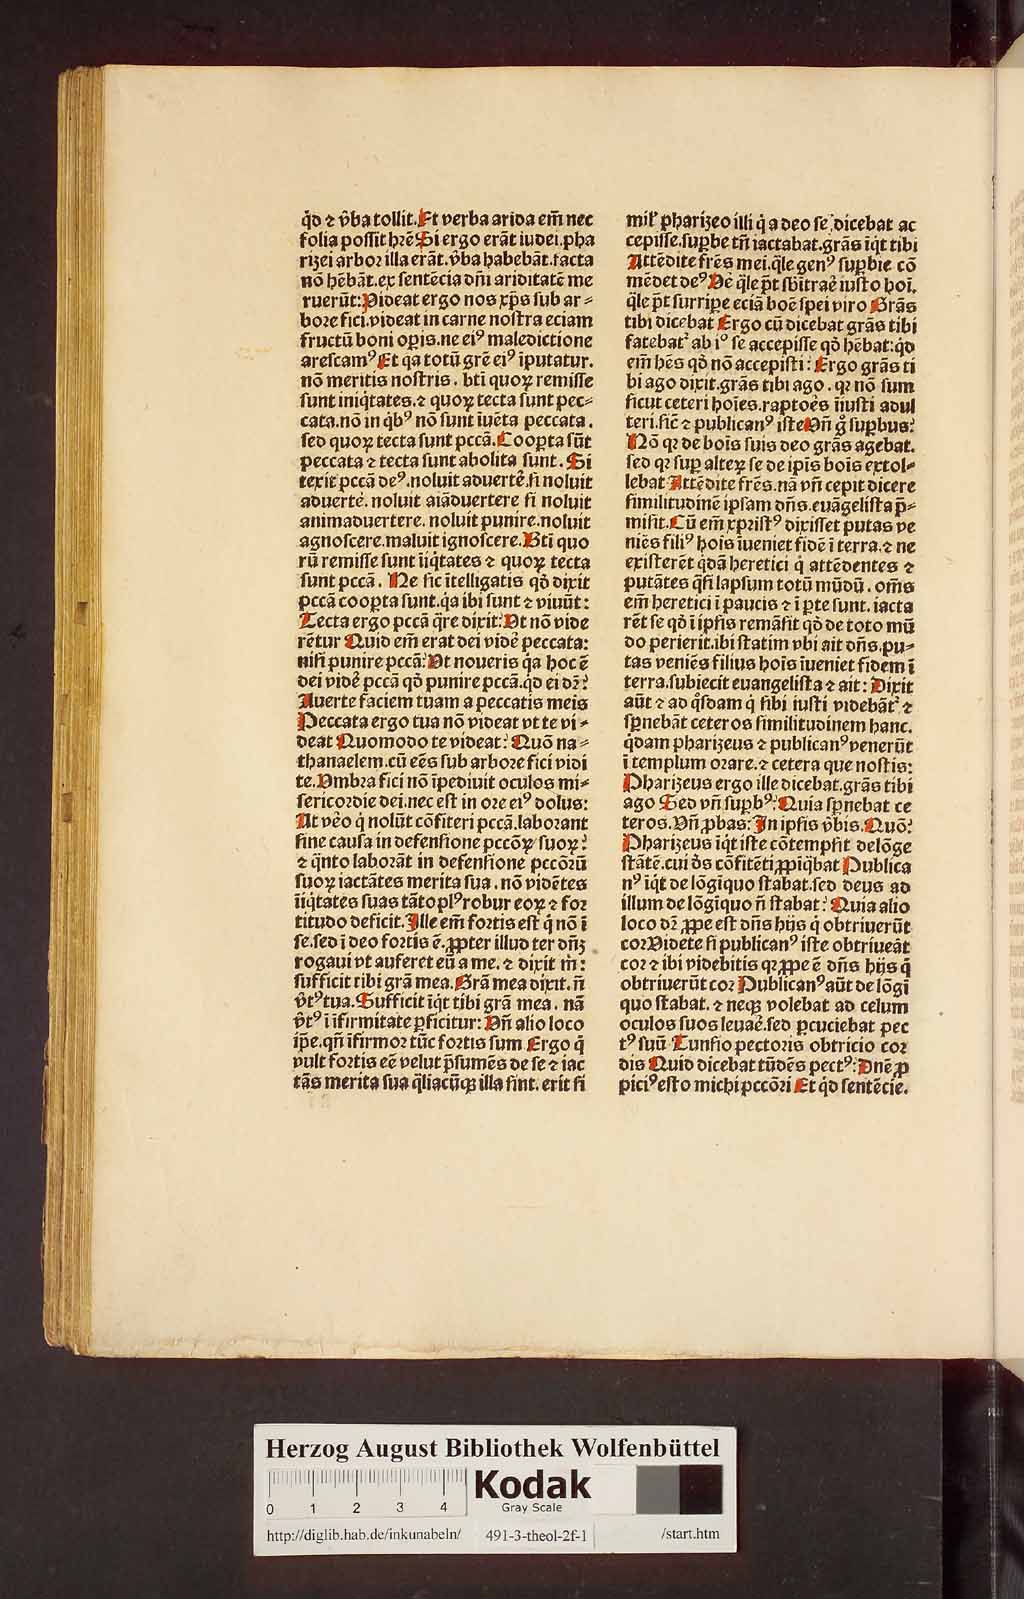 q̇d ⁊ v̇ba tollit. Et verba arida em̃ nec
folia poſſit hr̃e Si ergo erãt iudei. pha
rizei arbor illa erãt. v̇ba habebãt. facta
nõ hẽbãt. ex ſentẽcia dñi ariditatẽ me
ruerũt: Uideat ergo nos xp̃s ſub ar⸗
bore fici. videat in carne noſtra eciam
fructũ boni oꝑis. ne eiꝰ maledictione
areſcamꝰ Et qa totũ grẽ eiꝰ ĩputatur.
nõ meritis noſtris. bt̃i quoꝝ remiſſe
ſunt iniq̇tates. ⁊ quoꝝ tecta ſunt pec⸗
cata. nõ in q̇bꝰ nõ ſunt ĩuẽta peccata.
ſed quoꝝ tecta ſunt pccã. Cooꝑta ſũt
peccata ⁊ tecta ſunt abolita ſunt. Si
texit pccã deꝰ. noluit aduertẽ. ſi noluit
aduertẽ. noluit aĩaduertere ſi noluit
animaduertere. noluit punire. noluit
agnoſcere. maluit ignoſcere. Bt̃i quo
rũ remiſſe ſunt ĩiq̇tates ⁊ quoꝝ tecta
ſunt pccã. Ne ſic ĩtelligatis qȯ dixit
pccã cooꝑta ſunt. q̇a ibi ſunt ⁊ viuũt:
Tecta ergo pccã q̇re dixit: Ut nõ vide
rẽtur Quid em̃ erat dei videẽ peccata:
niſi punire pccã: Ut noueris q̇a hoc ẽ
dei videẽ pccã qȯ punire pccã. qd ei dr̃:
Auerte faciem tuam a peccatis meis
Peccata ergo tua nõ videat vt te vi⸗
deat Quomodo te videat: Quõ na⸗
thanaelem. cũ eẽs ſub arbore fici vidi
te. Umbra fici nõ ĩpediuit oculos mi⸗
ſericordie dei. nec eſt in ore eiꝰ dolus:
At v̇o q̇ nolũt cõfiteri pccã. laborant
ſine cauſa in defenſione pccõꝝ ſuoꝝ:
⁊ q̇nto laborãt in defenſione pccõrũ
ſuoꝝ iactãtes merita ſua. nõ vidẽtes
ĩiq̇tates ſuas tãto plꝰ robur eoꝝ ⁊ for
titudo deficit. Ille em̃ fortis eſt q̇ nõ ĩ
ſe. ſed ĩ deo fortis ẽ. ꝓpter illud ter dñꝫ
rogaui vt auferet eũ a me. ⁊ dixit m̃:
ſufficit tibi grã mea. Grã mea dixit. ñ
v̇tꝰ tua. Sufficit ĩqt tibi grã mea. nã
v̇tꝰ ĩ ĩfirmitate ꝑficitur: Uñ alio loco
ip̃e. qñ ĩfirmor tũc fortis ſum Ergo q̇
vult fortis eẽ velut p̃ſumẽs de ſe ⁊ iac
tãs merita ſua q̇liacũqꝫ illa ſint. erit ſi
mil' pharizeo illi q̇ a deo ſe dicebat ac
cepiſſe. ſuꝑbe tñ iactabat. grãs ĩqt tibi
Attẽdite frẽs mei. q̇le genꝰ ſuꝑbie cõ
mẽdet deꝰ Uẽ q̇le p̃t ſb̃ĩtraẽ iuſto hoĩ.
q̇le p̃t ſurripe eciã boẽ ſpei viro Grãs
tibi dicebat Ergo cũ dicebat grãs tibi
fatebat᷑ ab iº ſe accepiſſe qȯ hẽbat: q̇d
em̃ hẽs qȯ nõ accepiſti: Ergo grãs ti
bi ago dixit. grãs tibi ago. qꝛ nõ ſum
ſicut ceteri hoĩes. raptoẽs ĩiuſti adul
teri. ſic̃ ⁊ publicanꝰ iſte Uñ g̊ ſuꝑbus:
Nõ qꝛ de boĩs ſuis deo grãs agebat.
ſed qꝛ ſuꝑ alteꝝ ſe de ip̃is boĩs extol⸗
lebat Attẽdite frẽs. nã vñ cepit dicere
ſimilitudinẽ ipſam dñs. euãgeliſta p̃⸗
miſit. Cũ em̃ xpriſtꝰ dixiſſet putas ve
niẽs filiꝰ hoĩs ĩueniet fidẽ ĩ terra. ⁊ ne
exiſterẽt q̇dã heretici q̇ attẽdentes ⁊
putãtes q̇ſi lapſum totũ mũdũ. om̃s
em̃ heretici ĩ paucis ⁊ ĩ ꝑte ſunt. iacta
rẽt ſe qȯ ĩ ipſis remãſit qȯ de toto mũ
do perierit. ibi ſtatim vbi ait dñs. pu⸗
tas veniẽs filius hoĩs ĩueniet fidem ĩ
terra. ſubiecit euangeliſta ⁊ ait: Dixit
aũt ⁊ ad q̊ſdam q̇ ſibi iuſti videbãt᷑ ⁊
ſꝑnebãt ceteros ſimilitudinem hanc.
q̇dam pharizeus ⁊ publicanꝰ venerũt
ĩ templum orare. ⁊ cetera que noſtis:
Pharizeus ergo ille dicebat. grãs tibi
ago Sed vñ ſuꝑbꝰ: Quia ſꝑnebat ce
teros. Uñ ꝓbas: In ipſis v̇bis. Quõ:
Phariʒeus ĩqt iſte cõtempſit delõge
ſtãtẽ. cui d̊s cõfitẽti ꝓpĩq̇bat Publica
nꝰ ĩqt de lõgĩquo ſtabat. ſed deus ad
illum de lõgĩquo ñ ſtabat: Quia alio
loco dr̃ ꝓpe eſt dñs hijs q̇ obtriuerũt
cor Videte ſi publicanꝰ iſte obtriueãt
cor ⁊ ibi videbitis qꝛ ꝓpe ẽ dñs hijs q̇
obtriuerũt cor Publicanꝰ aũt de lõgĩ
quo ſtabat. ⁊ neqꝫ volebat ad celum
oculos ſuos leuaẽ. ſed ꝑcuciebat pec
tꝰ ſuũ Tunſio pectoris obtricio cor
dis Quid dicebat tũdẽs pectꝰ: Dñe ꝓ
piciꝰ eſto michi pccõri Et q̇d ſentẽcie.
Herzog August Bibliothek Wolfenbüttel
Kodak
Gray Scale
0 1 2 3 4
http://diglib.hab.de/inkunabeln/ 491-3-theol-2f-1 /start.htm